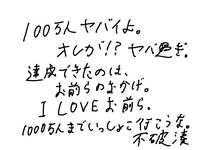 100万人ヤバイよ。
オレが!?ヤバ過ぎ。
達成できたのは、
お前らのおかげ。
I LOVEお前ら。
1000万人までいっしょに行こうな。
不破湊